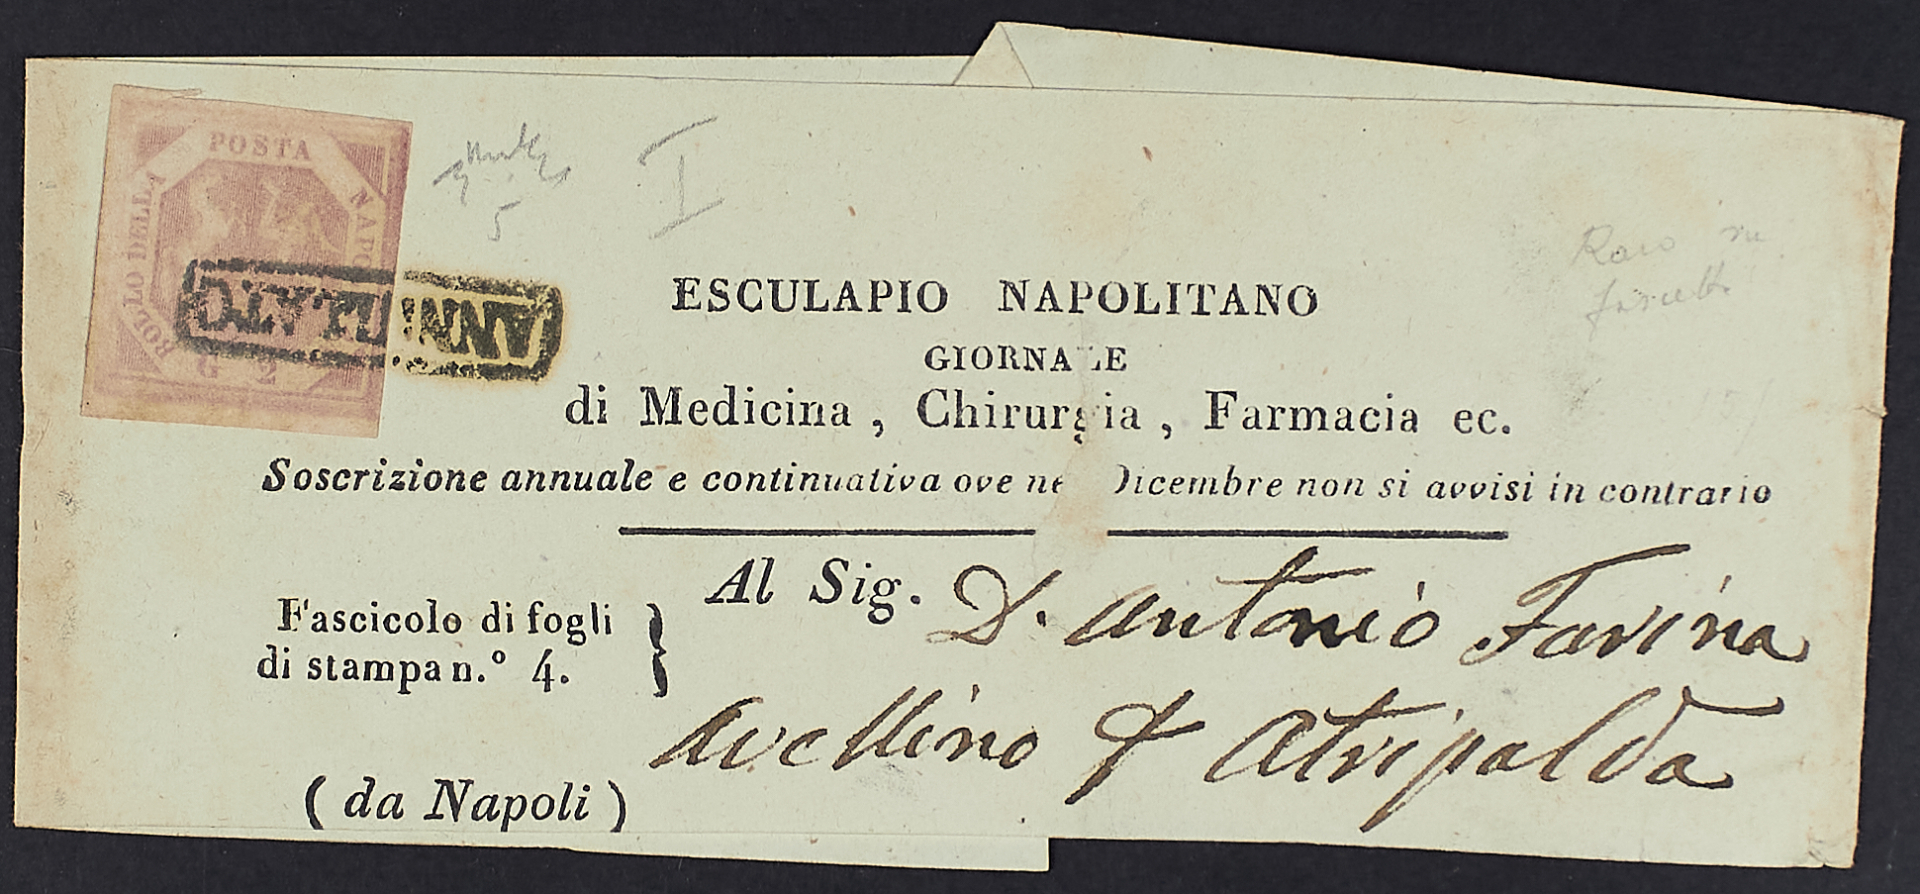 BOLLO DELLA
POSTA
NAPO
G 2
ANNULLATO
5
I
Raro su
ESCULAPIO NAPOLITANO
GIORNALE
di Medicina , Chirurgia , Farmacia ec.
Soscrizione annuale e continuativa ove ne Dicembre non si avvisi in contrario
Al Sig. D. Antonio Farina
Fascicolo di fogli
di stampa n.º 4. }
Avellino p Atripalda
( da Napoli )